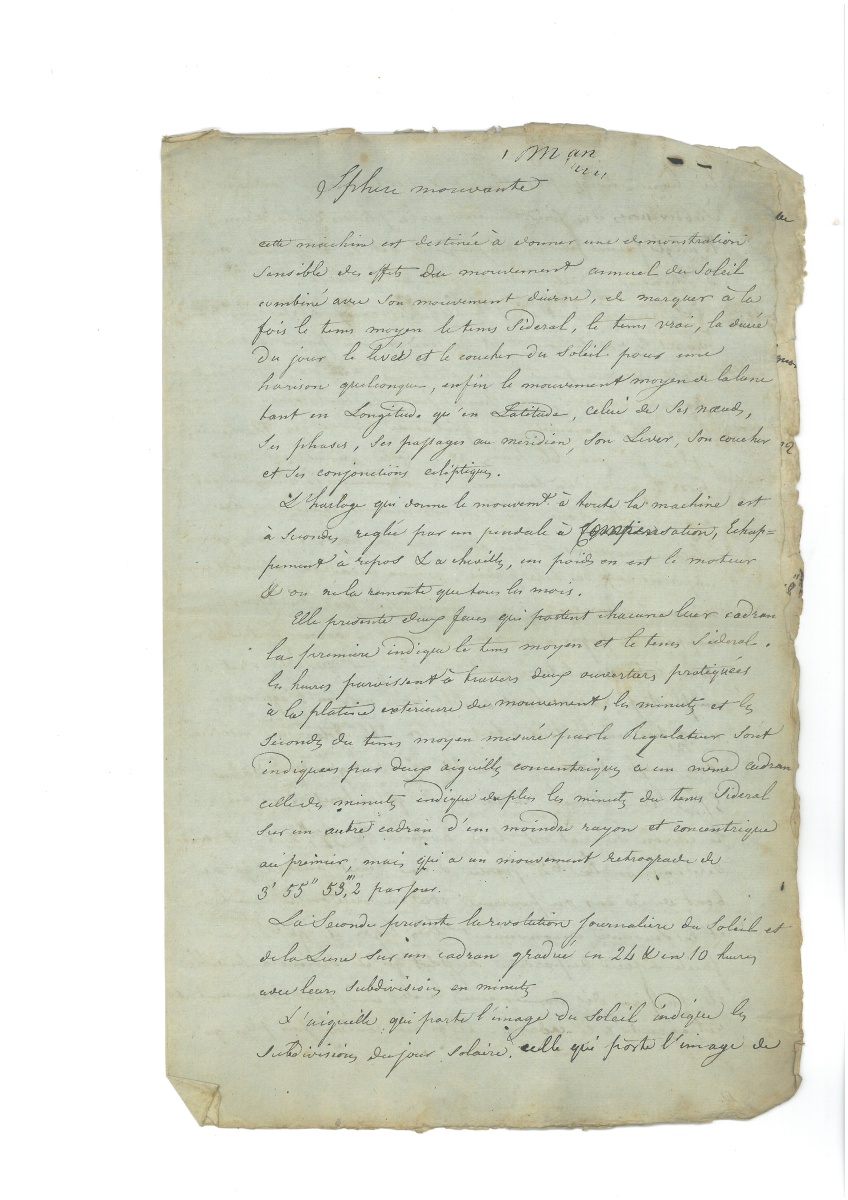 1 Man
Sphere mouvante
cette machine est destinée à donner une demonstration
sensible des effets du mouvement annuel du Soleil
combiné avec son mouvement diurne, de marquer à la
fois le tems moyen le tems Sideral, le tems vrai, la durée
du jour le levér et le coucher du Soleil pour une
horison quelconque, enfin le mouvement moyen de la lune
tant en Longitude qu'en Latitude, celui de ses nœuds,
ses phases, ses passages au meridien, son Lever, son coucher
et ses conjonctions ecliptiques.
L'horloge qui donne le mouvemt à toute la machine est
à secondes reglée par un pendule à Compensation, Echap=
pement à repos à chevilles, un poids en est le moteur
& on ne la remonte que tous les mois.
Elle presente deux faces qui portent chacune leur cadran
la premiere indique le tems moyen et le tems Sideral.
les heures paroissent à travers deux ouvertures pratiquées
à la platine exterieure du mouvement, les minutes et les
Secondes du tems moyen mesuré par le Regulateur sont
indiquées par deux aiguilles concentriques a un même cadran
celle des minutes indique de plus les minutes du tems Sideral
sur un autre cadran d'un moindre rayon et concentrique
au premier, mais qui a un mouvement retrograde de
3' 55" 53''',2 par jour.
La Seconde presente la revolution journaliere du Soleil et
de la Lune sur un cadran gradué en 24 & en 10 heures
avec leurs subdivisions en minutes
L'aiguille qui porte l'image du Soleil indique les
subdivisions du jour solaire. celle qui porte l'image de